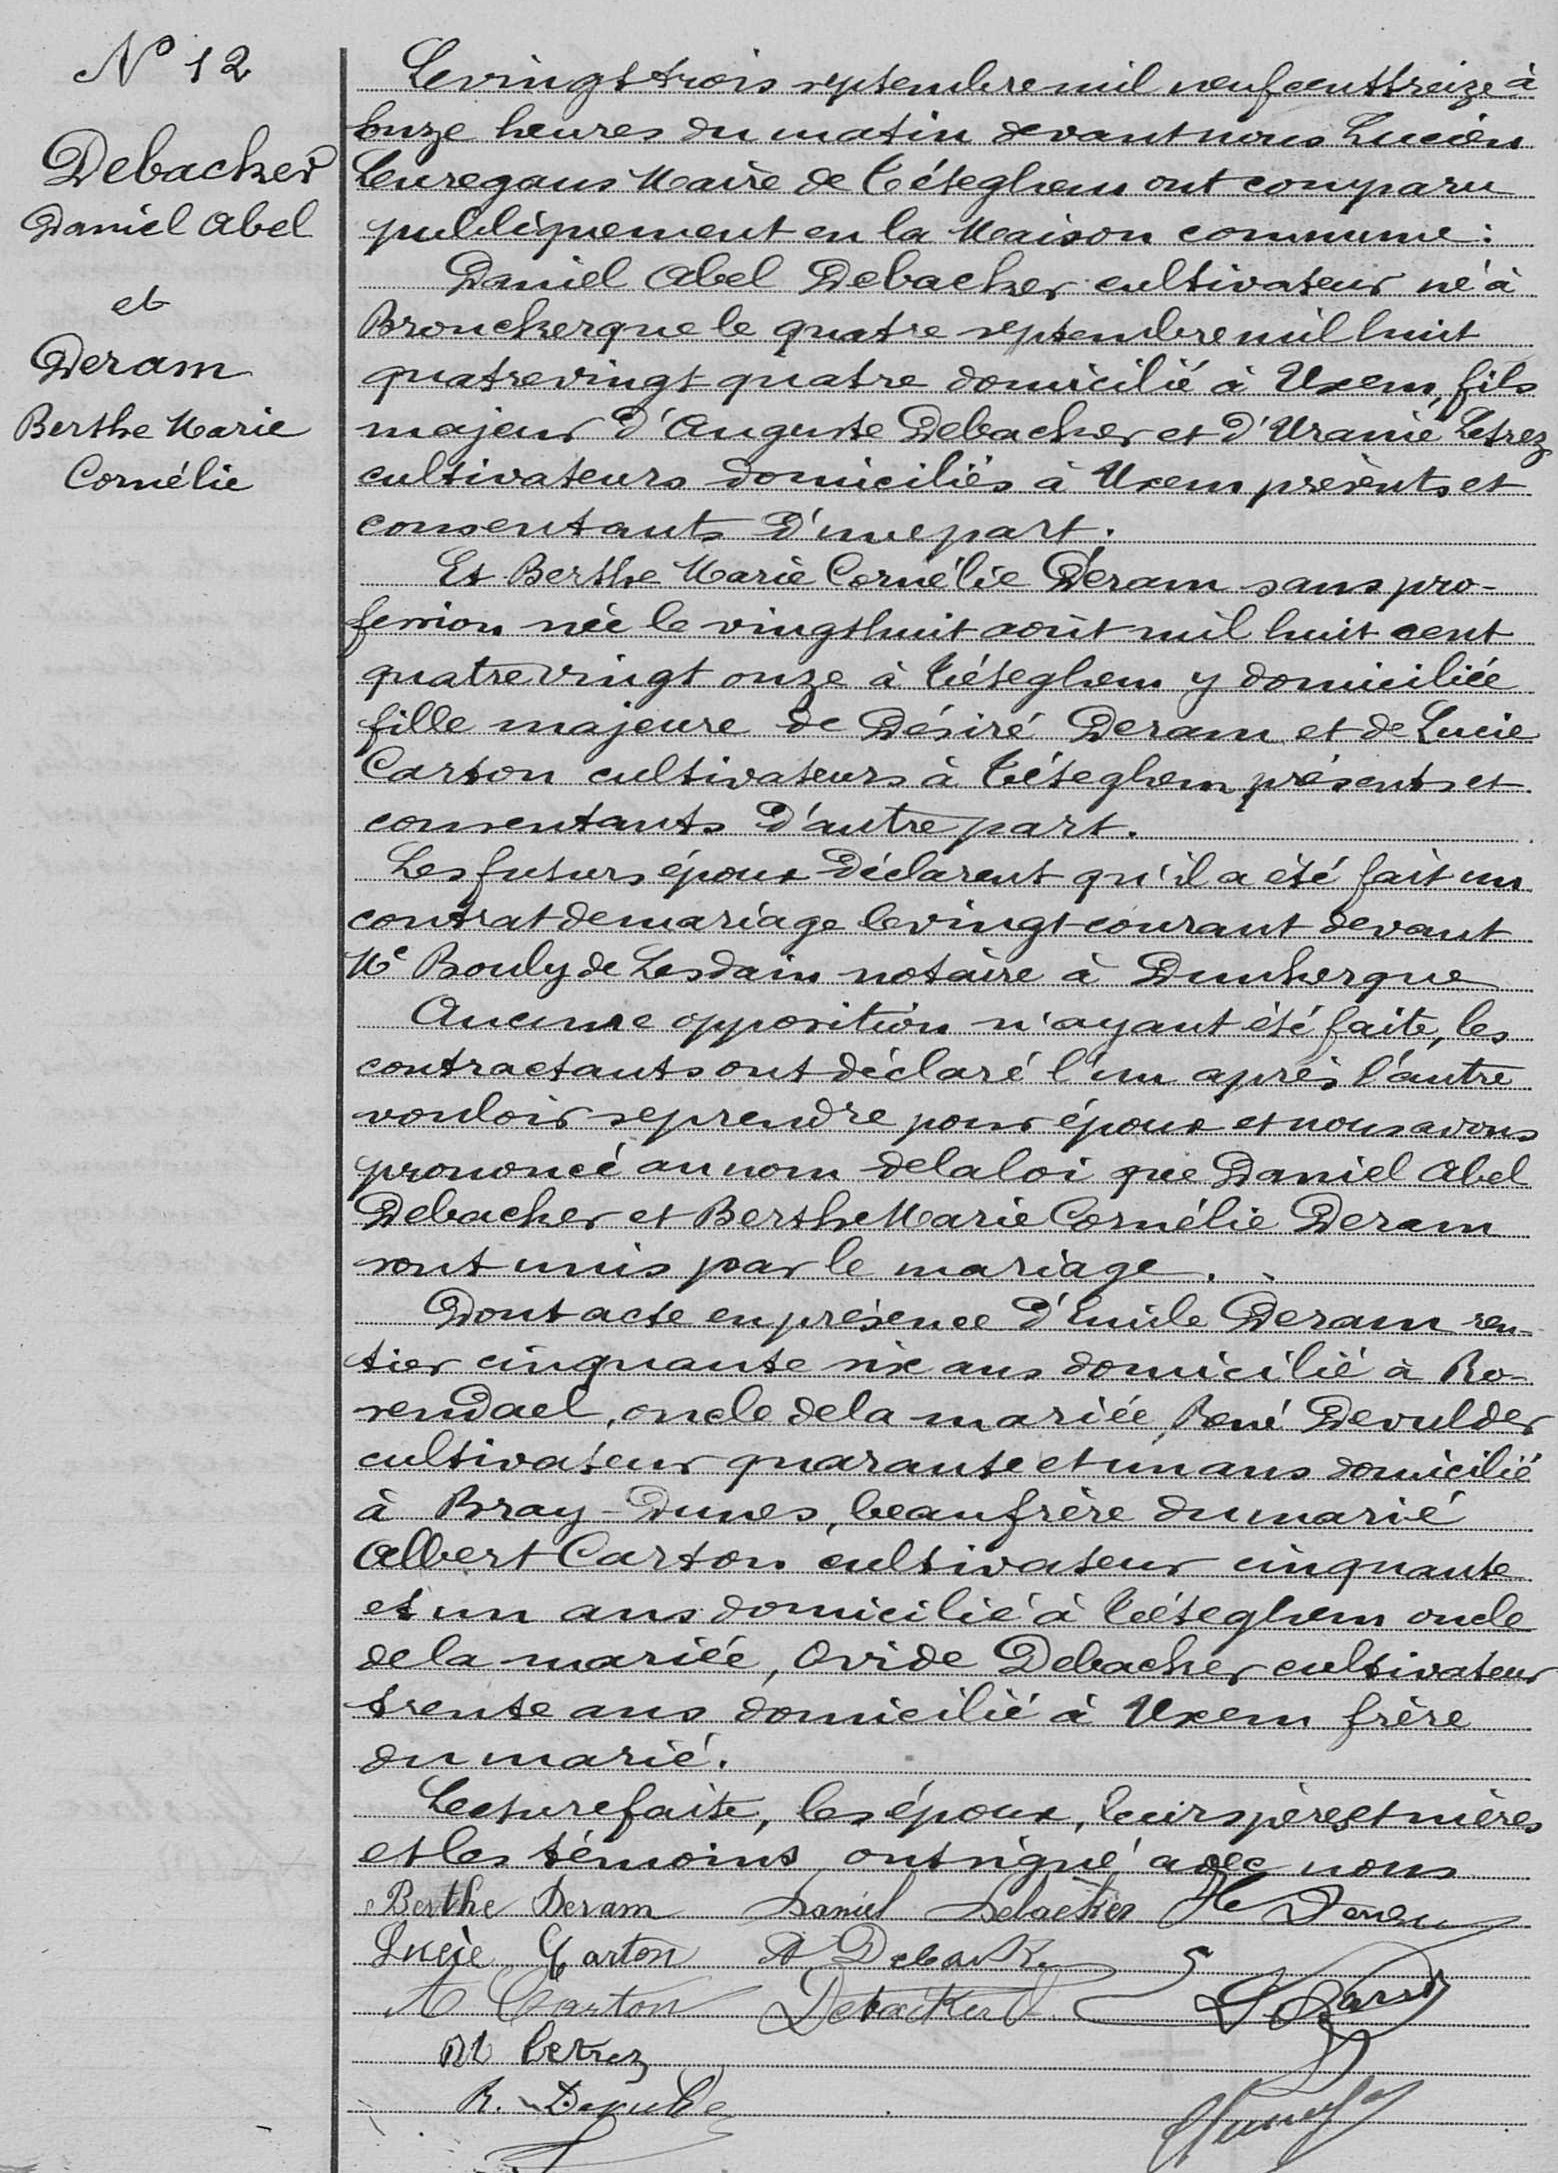 N° 12
Debacker
Daniel Abel
et
Deram
Berthe Marie
Cornélie
Le vingt trois septembre mil neuf cent treize à
onze heures du matin devant nous Lucien
Leuregans Maire de Téteghem ont comparu
publiquement en la Maison commune :
Daniel Abel Debacker cultivateur né à
Brouckerque le quatre septembre mil huit
quatre vingt quatre domicilié à Uxem, fils
majeur d'Auguste Debacker et d'Uranie Letrez
cultivateurs domiciliés à Uxem présents et
consentants d'une part.
Et Berthe Marie Cornélie Deram sans pro-
fession née le vingt huit août mil huit cent
quatre vingt onze à Téteghem y domiciliée
fille majeure de Désiré Deram et de Lucie
Carton cultivateurs à Téteghem, présents et
consentants d'autre part.
Les futurs époux déclarent qu'il a été fait un
contrat de mariage le vingt courant devant
Me Bouly de Lesdain notaire à Dunkerque
Aucune opposition n'ayant été faite, les
contractants ont déclaré l'un après l'autre
vouloir se prendre pour époux et nous avons
prononcé au nom de la loi que Daniel Abel
Debacker et Berthe Marie Cornélie Deram
sont unis par le mariage.
Dont acte en présence d'Emile Deram ren-
tier cinquante six ans domicilié à Ro-
sendael, oncle de la mariée, René Devulder
cultivateur quarante et un ans domicilié
à Bray-Dunes, beau frère du marié
Albert Carton cultivateur cinquante
et un ans domicilié à Téteghem oncle
de la mariée, Ovide Debacker cultivateur
trente ans domicilié à Uxem frère
du marié.
Lecture faite, les époux, leurs pères et mères
et les témoins ont signé avec nous
Berthe Deram Daniel Debacker
Lucie Carton A Debacker
A Carton Debacker
Letrez
R. Devulder